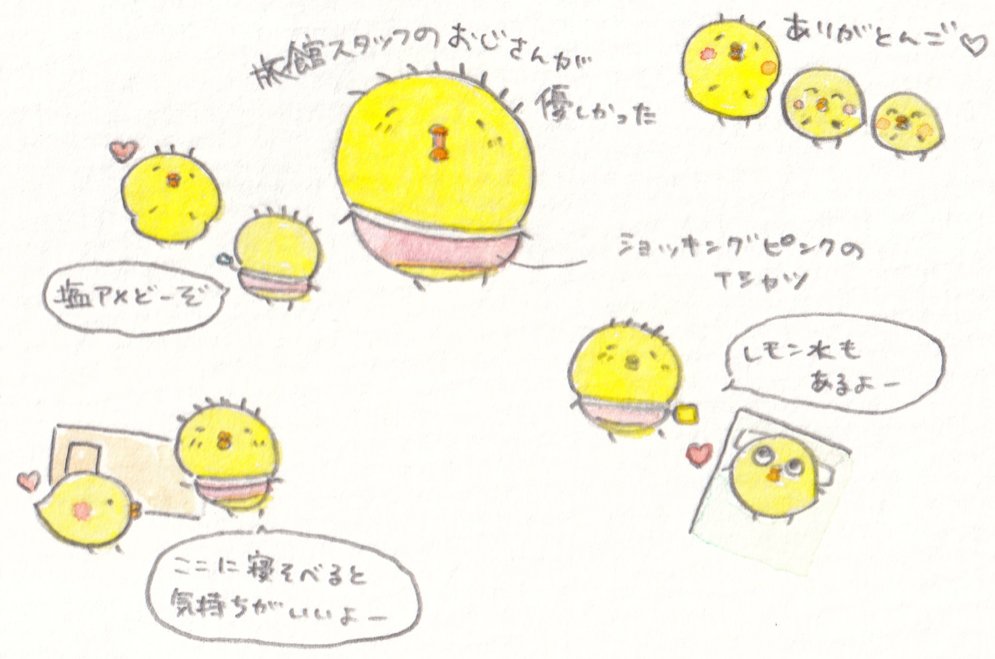 旅館スタッフのおじさんが
優しかった
ありがとんご♡
塩アメどーぞ
ショッキングピンクの
Tシャツ
レモン水も
あるよー
ここに寝そべると
気持ちがいいよー